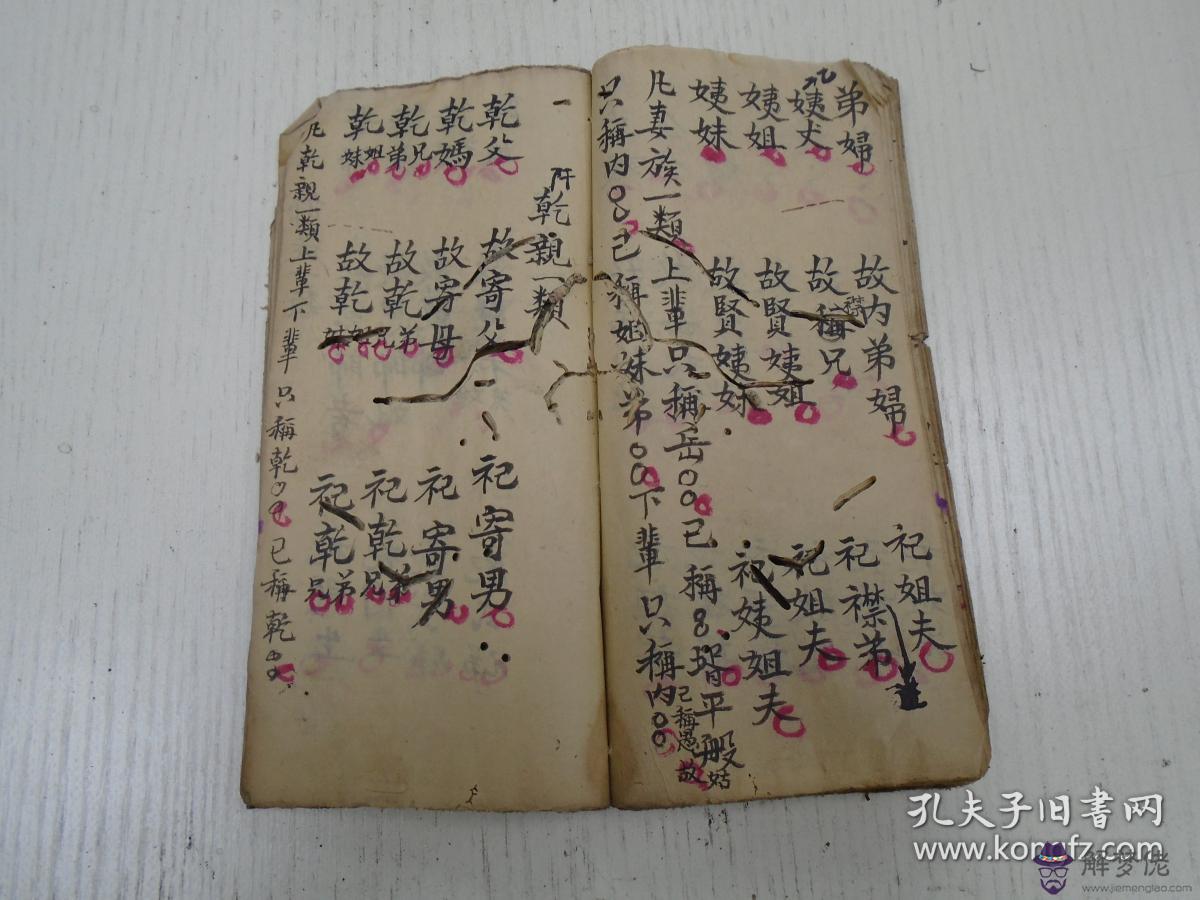 弟婦 故内弟婦 祀姐夫
姨丈 故稱兄 襟 祀襟弟
姨姐 故賢姨姐 祀姐夫
姨妹 故賢姨妹 祀姨姐夫
凡妻族一類上輩只稱岳〇〇已稱〇婿平般姑
只稱内〇〇已稱姐妹弟〇〇下輩只稱内〇〇
己稱愚故
一 阡乾親一類
乾父 故寄父 祀寄男
乾媽 故寄母 祀寄男
乾兄弟 故乾兄弟 祀乾兄弟
乾姐妹 故乾姐妹 祀乾兄弟
凡乾親一類上輩下輩只稱乾〇〇已稱乾〇〇
孔夫子旧书网
www.kongfz.com
解梦佬
www.jiemenglao.com